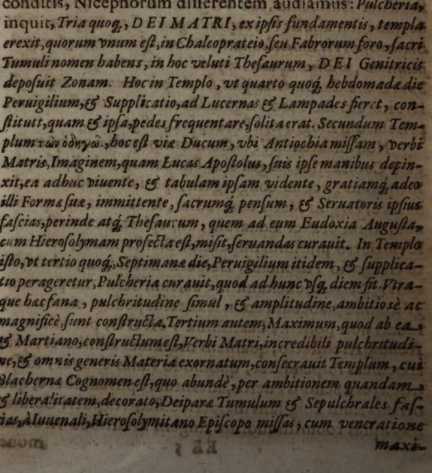 conditis, Nicephorum differentem audiamus: Pulcheria,
inquit, Tria quoq́, DEI MATRI, ex ipsis fundamentis, templa
erexit, quorum vnum est, in Chalcoprateio, seu Fabrorum foro, sacri
Tumuli nomen habens, in hoc veluti Thesaurum, DEI Genitricis
deposuit Zonam. Hoc in Templo, vt quarto quoq́, hebdomadæ die
Peruigilium, & Supplicatio, ad Lucernas & Lampades fieret, con-
stituit, quam & ipsa, pedes frequentare, solita erat. Secundum Tem-
plum τῶν ὁδηγῶν, hoc est viæ Ducum, vbi Antiochia missam, verbi
Matris, Imaginem, quam Lucas Apostolus, suis ipse manibus depin-
xit, ea adhuc viuente, & tabulam ipsam vidente, gratiamq́, adeo
illi Formæ suæ, immittente, sacrumq́, pensum, & Seruatoris ipsius
fascias, perinde atq́, Thesaurum, quem ad eum Eudoxia Augusta,
cum Hierosolymam profecta est, misit, seruandas curauit. In Templo
isto, vt tertio quoq́, Septimanæ die, Peruigilium itidem, & supplica-
tio perageretur, Pulcheria curauit, quod ad hunc vsq́, diem fit. Vtra-
que hæc fana, pulchritudine simul, & amplitudine, ambitiose ac
magnificè, sunt constructa, Tertium autem, Maximum, quod ab ea
& Martiano, constructum est, Verbi Matri, incredibili pulchritudi-
ne, & omnis generis Materia exornatum, consecrauit Templum, cui
Blacherna Cognomen est, quo abundè, per ambitionem quandam
& liberalitatem, decorato, Deiparæ Tumulum & Sepulchrales fas-
cias, à Iuuenali, Hierosolymitano Episcopo missas, cum veneratione
maxi-